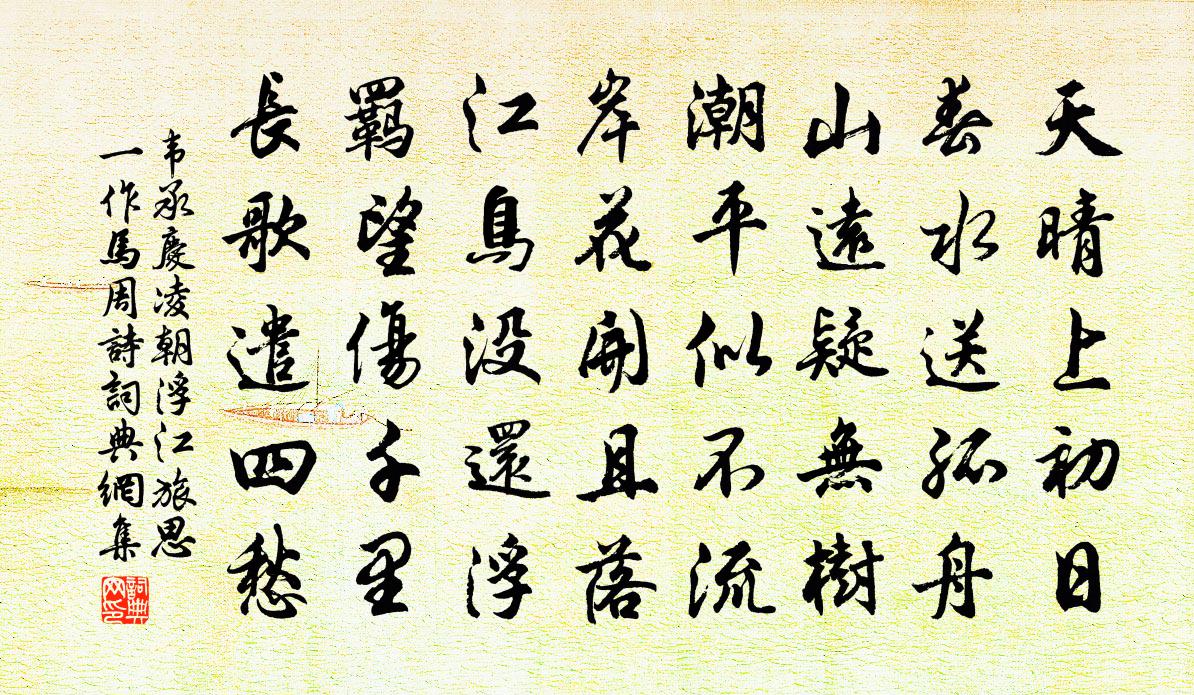 天晴上初日
春水送孤舟
山遠疑無樹
潮平似不流
岸花開且落
江鳥没還浮
羈望傷千里
長歌遣四愁
韦承慶凌朝浮江旅思
一作馬周詩詞典網集
詞典網印